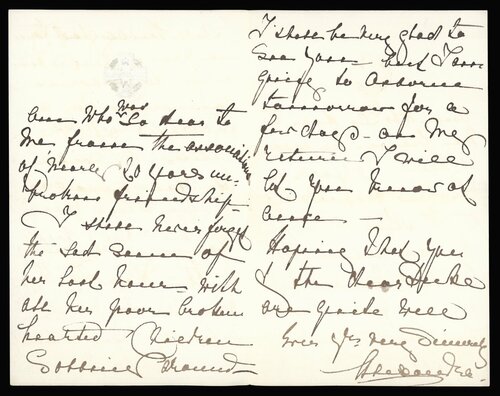 one who was so dear to
me from the association
of nearly 20 years un-
broken friendship -
I shall never forget
the sad scene of
her last hour with
all her poor broken
hearted children
sobbing around -
I shall be very glad to
see you but I am
going to Osborne
tomorrow for a
few days - on my
return I will
let you know at
once -
Hoping that you
& the dear Duke
are quite well
Yrs very sincerely
Alexandra